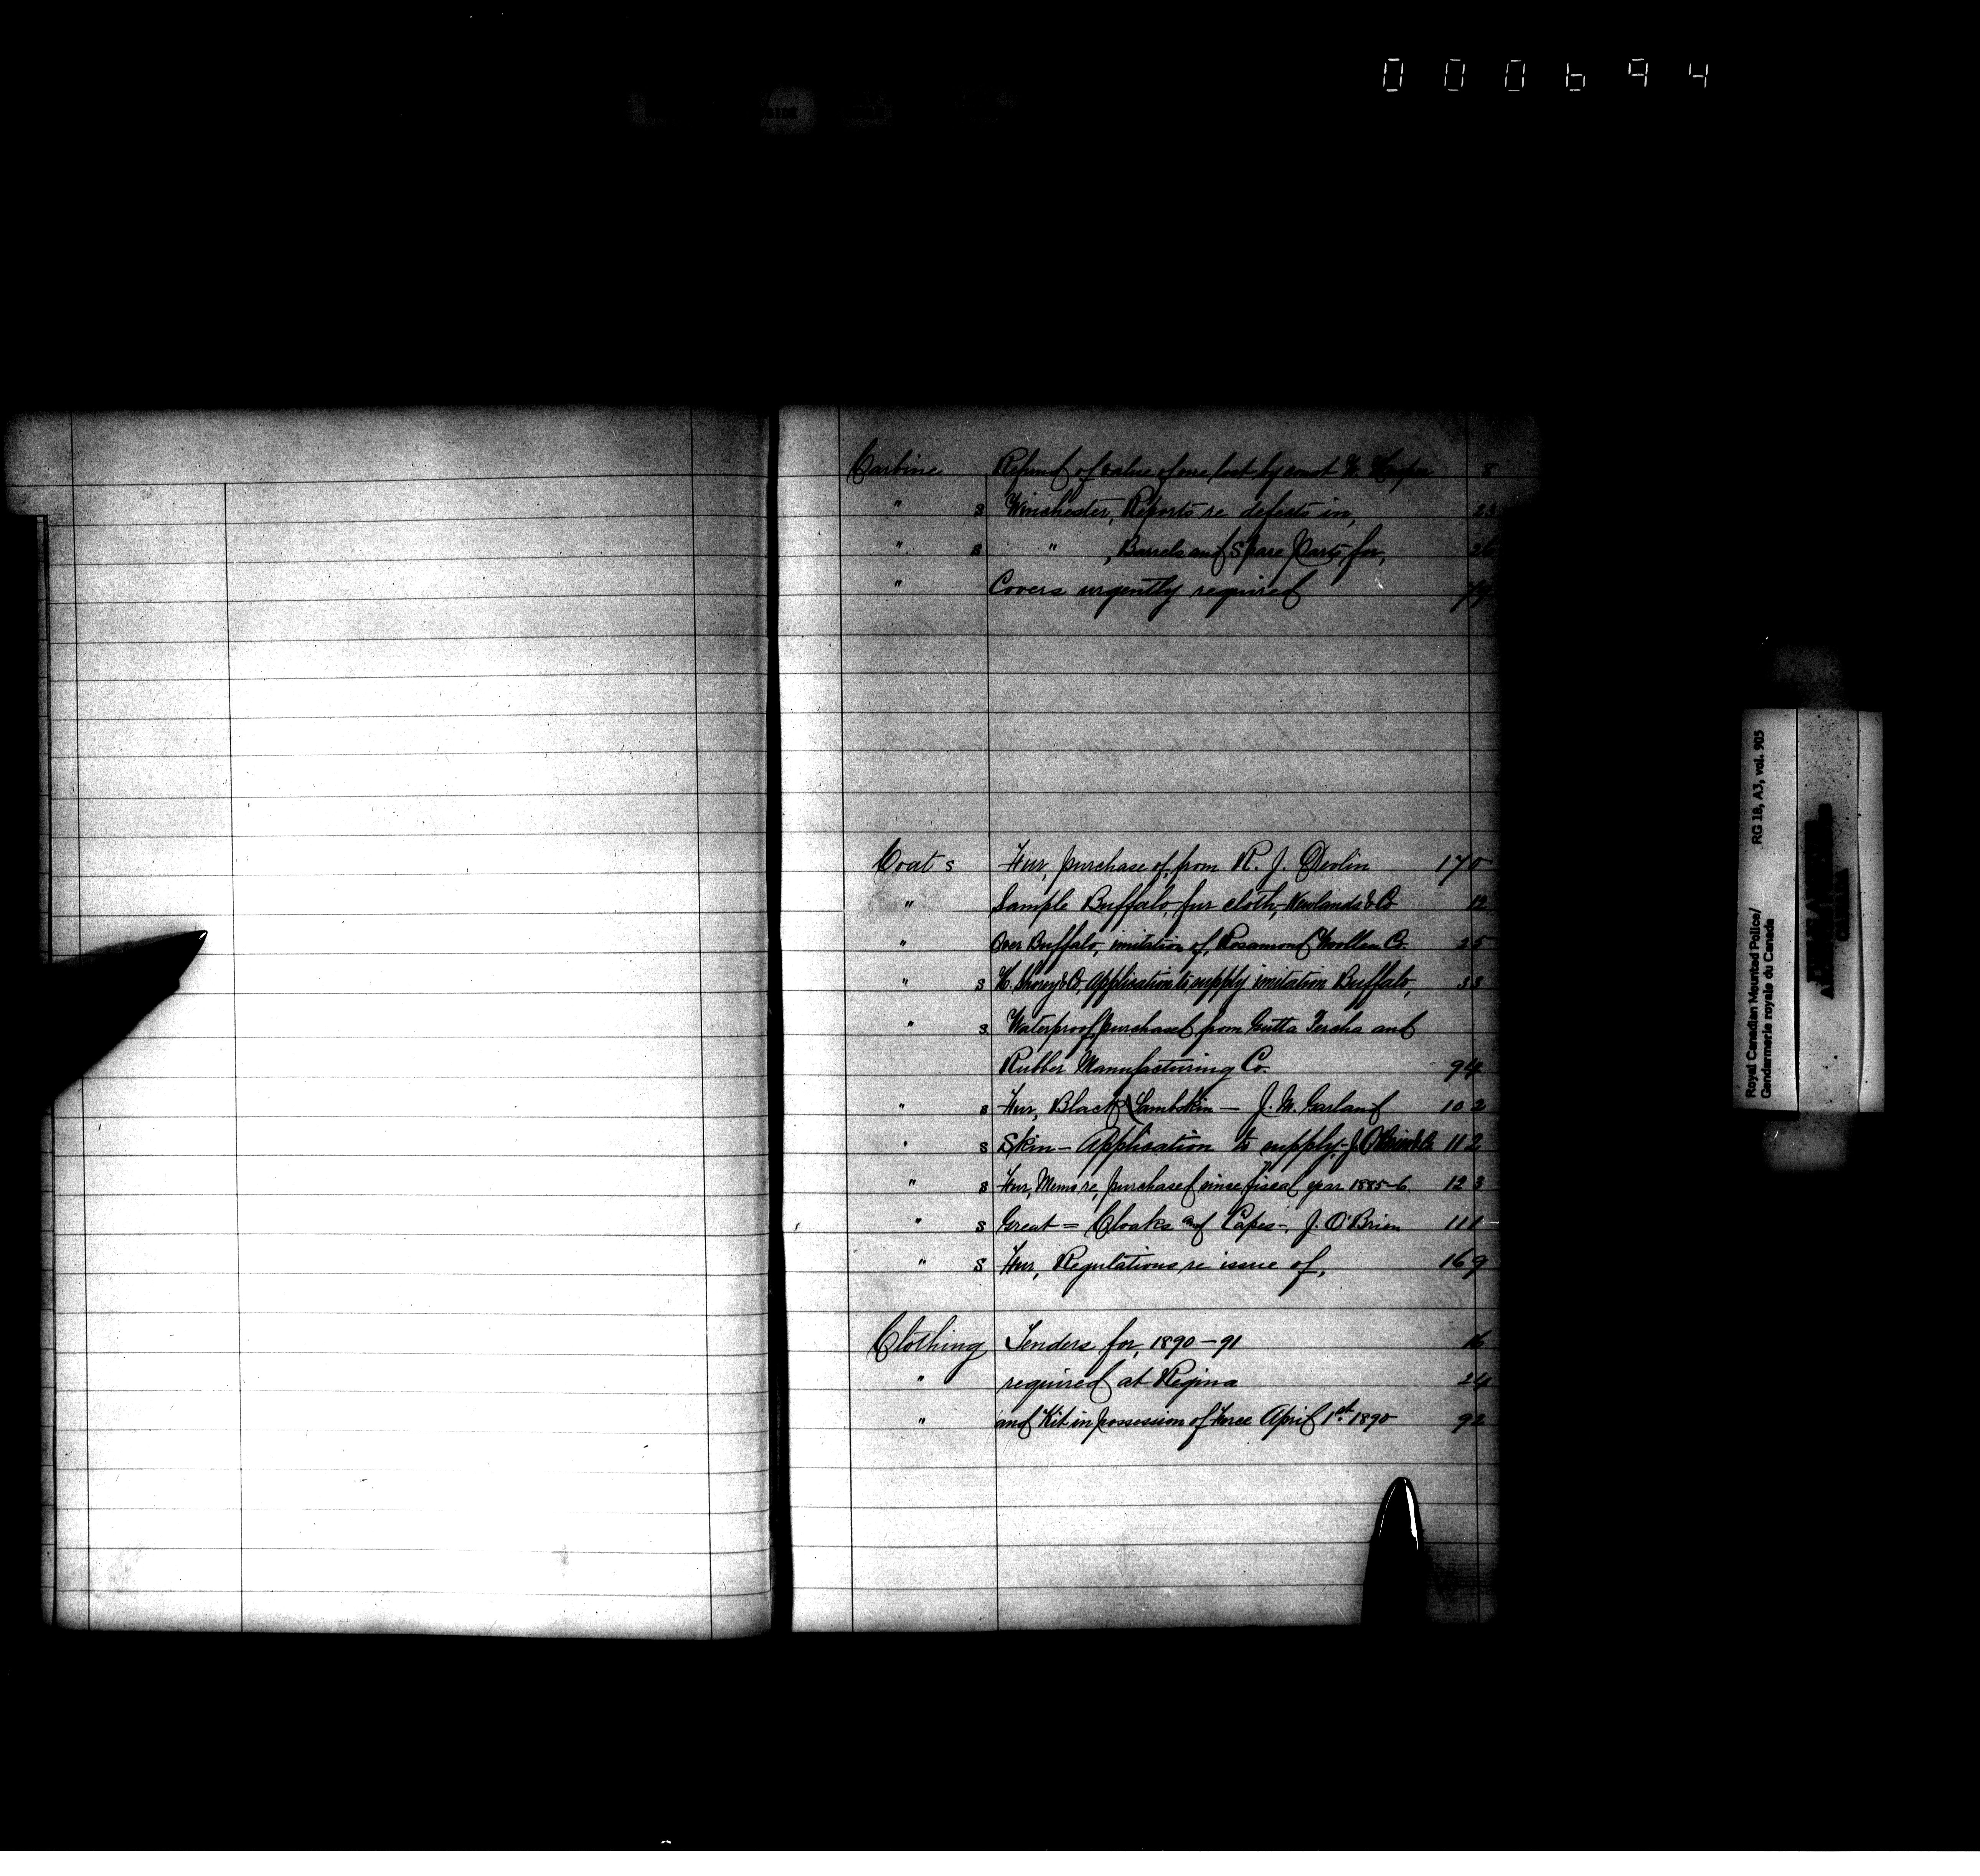 000694
Carbine Refund of value of one lost by const 8
" s Winchester, Reports re defects in, 23
" s " , Barrels and Spare Parts for, 26
" Covers urgently required 79
Coats Fur, purchase of, from R. J. Devlin 170
" Sample Buffalo, fur cloth, Newlands & Co 12
" Over Buffalo, imitation of, Rosamond Woollen Co. 25
" s H. Shorey & Co, Application to supply imitation Buffalo, 33
" s Waterproof, purchased from Gutta Percha and
Rubber Manufacturing Co. 94
" s Fur, Black Lambskin — J. M. Garland 102
" s Skin — Application to supply - J. 112
" s Fur, Memo re, purchased since fiscal year 1885-6 123
" s Great = Cloaks and Capes -. J. O'Brien 111
" s Fur, Regulations re issue of, 169
Clothing Tenders for, 1890-91 16
" required at Regina 24
" and Kit in possession of Force April 1st. 1890 92
Royal Canadian Mounted Police/ RG 18, A3, vol. 905
Gendarmerie royale du Canada